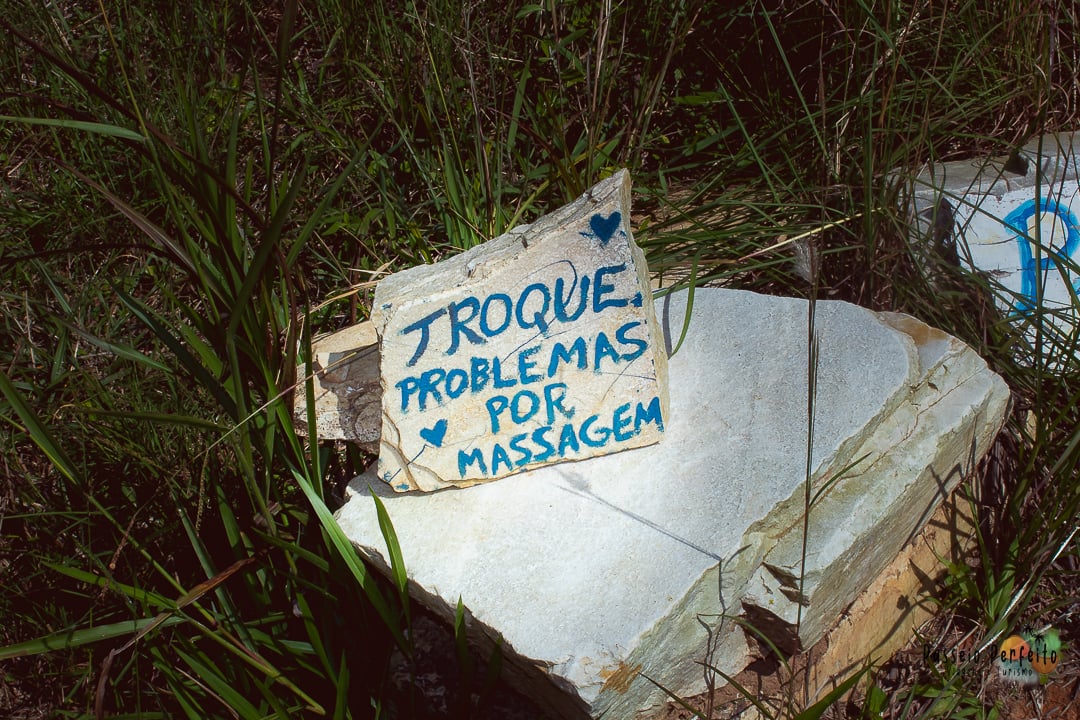 TROQUE.
PROBLEMAS
POR
MASSAGEM
P
Passeio Perfeito
Turismo